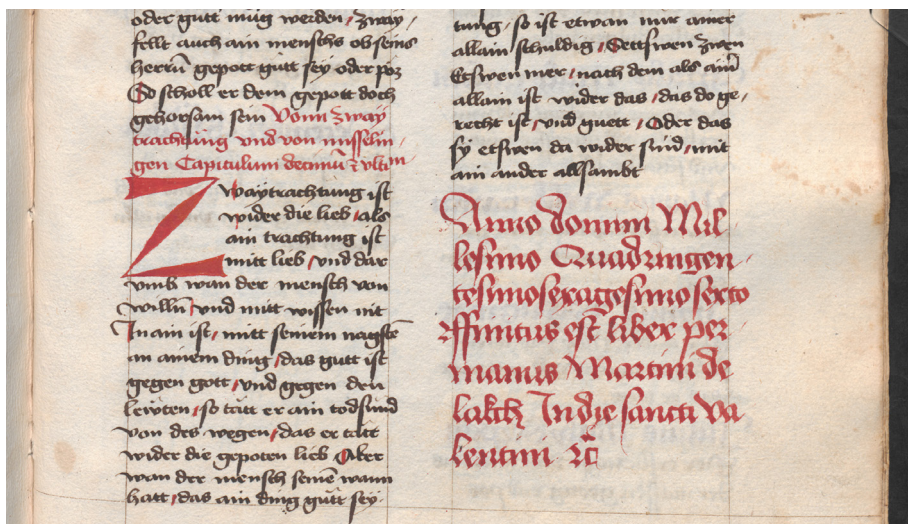 oder gutt mug werden / Zway
fellt auch ain menschs ob seins
herrn̄ gepott gutt sey oder pöz
So scholl er dem gepott doch
gehorsam sein Vonn zway
trachtung vnd von misselin
gen Capitulum decimū & vltimm
Zwaytrachtung ist
wider die lieb / als
ain trachtung ist
mitt lieb / vnd dar
vmb wan der mensch von
willn̄ / vnd mitt wissen nit
In ain ist / mitt seinem nagstē
in ainem ding / das gutt ist
gegen gott / vnd gegen den
lewten / so tätt er ain todsund
von des wegen / das er tätt
wider die gepoten lieb Aber
wan der mensch seinē wann
hatt / das ain ding gutt sey
tung / so ist etwan nur ainer
allain schuldig / Ettswen zwen
Etswen mer / nach dem als aīn
allain ist wider das / das do ge
recht ist / vnd guett / Oder das
sy etswen da wider sind / mit
ain ander allsambt
Anno domini Mil
lesimo Quadringen
tesimosexagesimosexto
Ffinitus est liber per
manus Martini de
laktz In die sancti Va
lentini &c